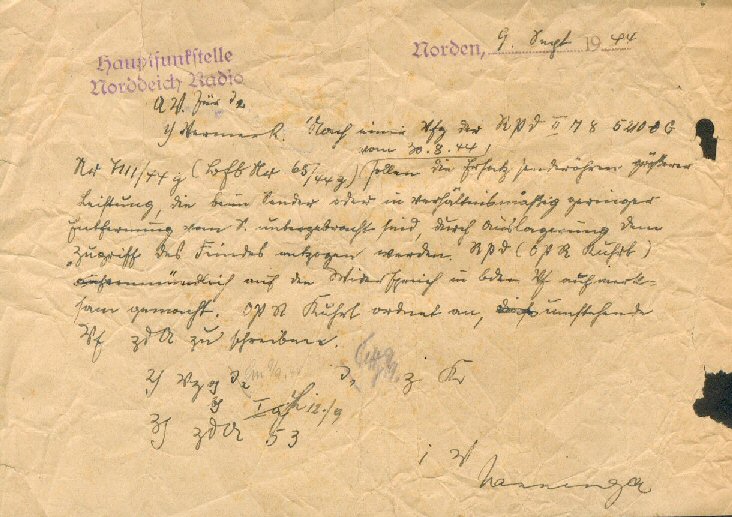 Hauptfunkstelle
Norddeich Radio
Norden, 9. Sept 1944
A V. für
1) Vermerk. Nach einer Vfg der RPd II
vom 30.8.44
Nr 7111/44 g (Bfb Nr 65/44g) sollen die Ersatzsenderöhren größerer
Leistung, die beim Sender oder in verhältnismäßig geringer
Entfernung vom S. untergebracht sind, durch Auslagerung dem
Zugriff des Feindes entzogen werden. RPd (OPR Kuhrt)
mündlich auf die Widerspruch in Vf aufmerk-
sam gemacht. OPR Kuhrt ordnet an, umstehende
Vf zdA zu schreiben.
2) z Kr
3) zdA 53
i V